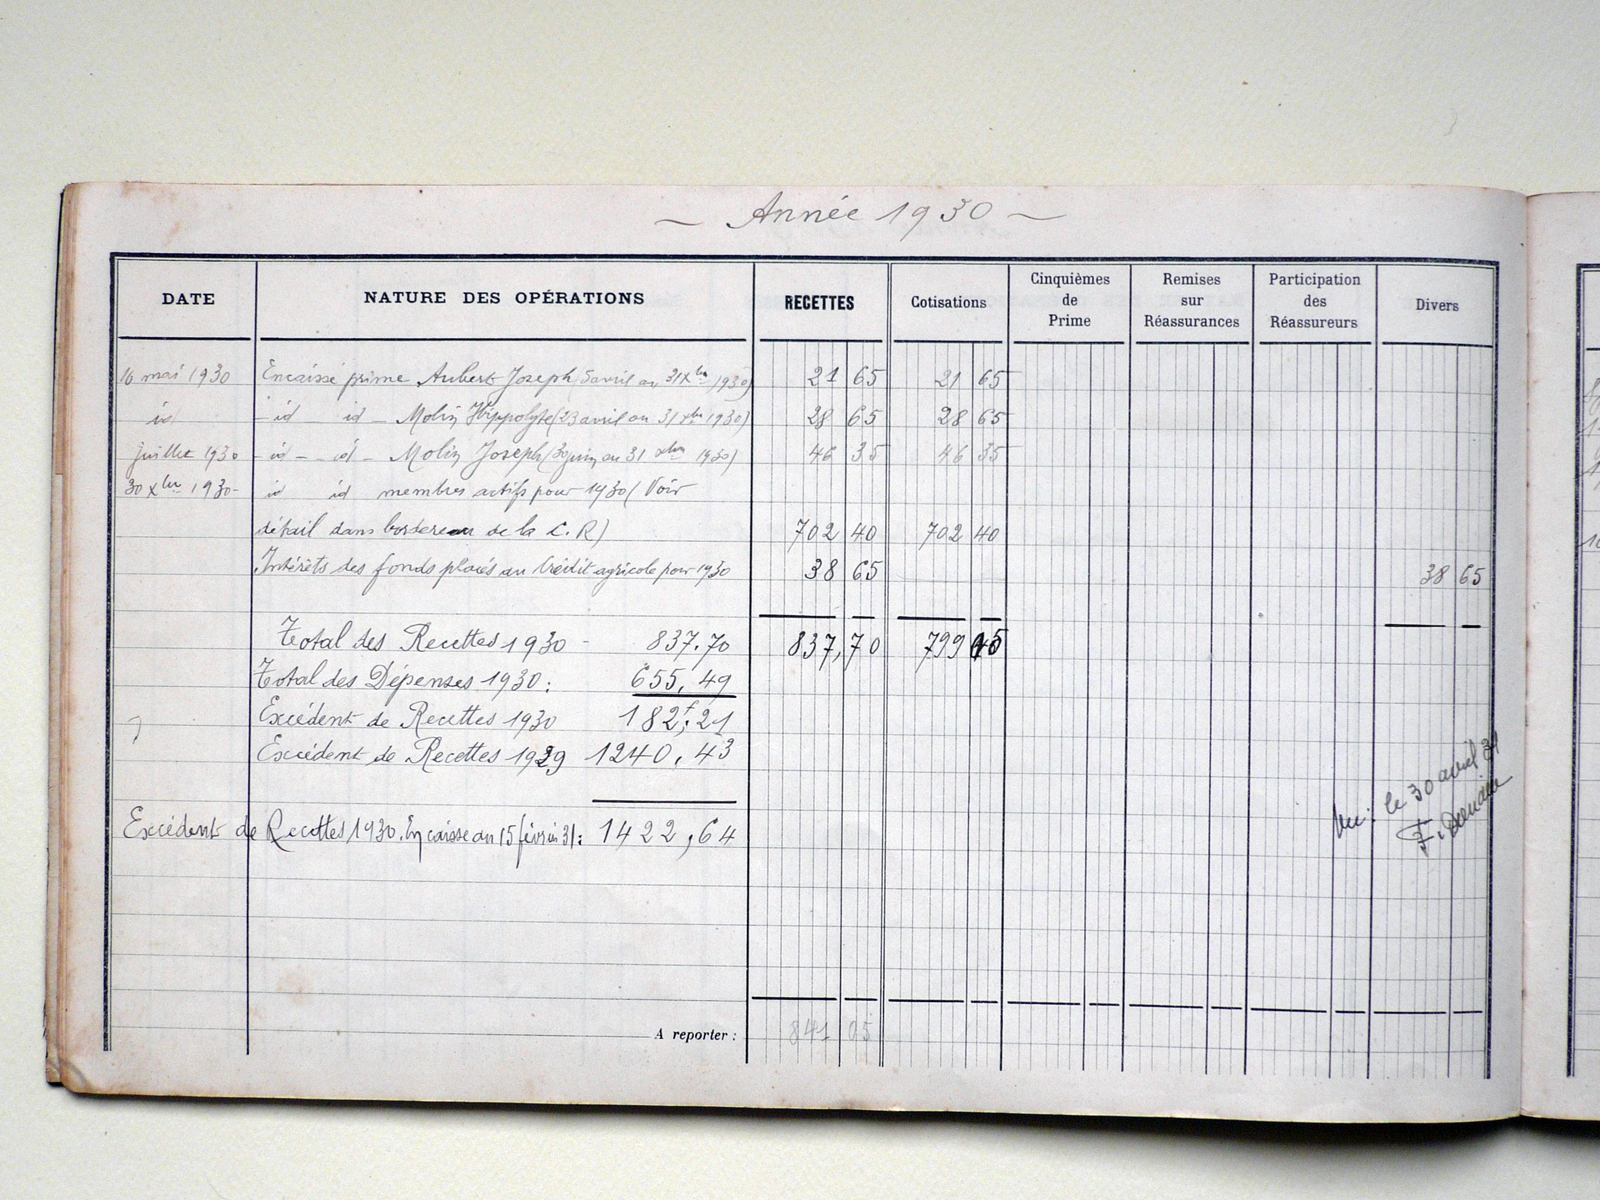 Année 1930
DATE NATURE DES OPÉRATIONS RECETTES Cotisations Cinquièmes de Prime Remises sur Réassurances Participation des Réassureurs Divers
16 mai 1930 Encaissé prime Aubert Joseph (5 avril au 31 Xbre 1930) 21 65 21 65
id - id id - Molin Hippolyte (23 avril au 31 xbre 1930) 28 65 28 65
Juillet 1930 - id - - id - Molin Joseph (30 juin au 31 xbre 1930) 46 35 46 35
30 xbre 1930 - id id membres actifs pour 1930 (Voir
détail dans bordereau de la C. R) 702 40 702 40
Intérêts des fonds placés au Crédit agricole pour 1930 38 65 38 65
Total des Recettes 1930 - 837.70 837,70 799 05
Total des Dépenses 1930 : 655,49
Excédent de Recettes 1930 182f,21
Excédent de Recettes 1929 1240,43
Excédent de Recettes 1930. En caisse au 15 février 31 : 1422,64
Vu : le 30 avril 31
F.
A reporter : 841 05